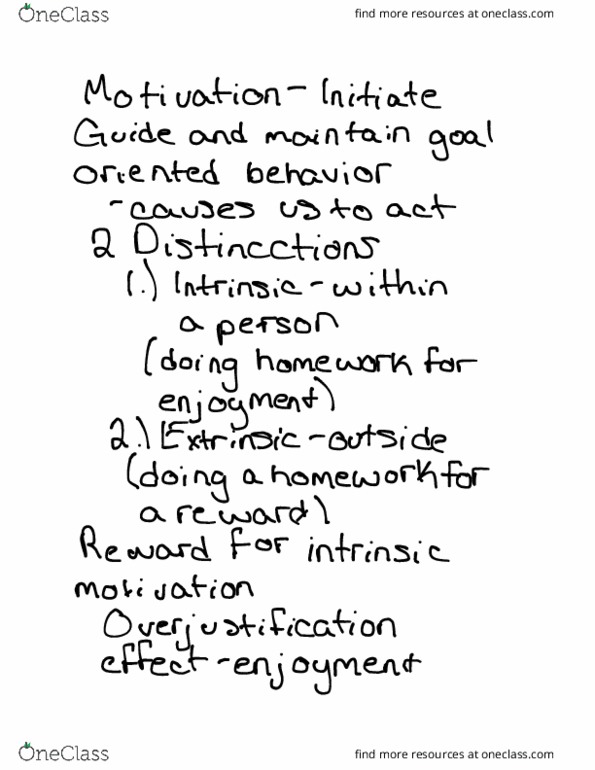 OneClass find more resources at oneclass.com
Motivation - Initiate
Guide and maintain goal
oriented behavior
- causes us to act
2 Distincctions
1.) Intrinsic - within
a person
(doing homework for
enjoyment)
2.) Extrinsic - outside
(doing a homework for
a reward)
Reward for intrinsic
motivation
Overjustification
effect - enjoyment
OneClass find more resources at oneclass.com